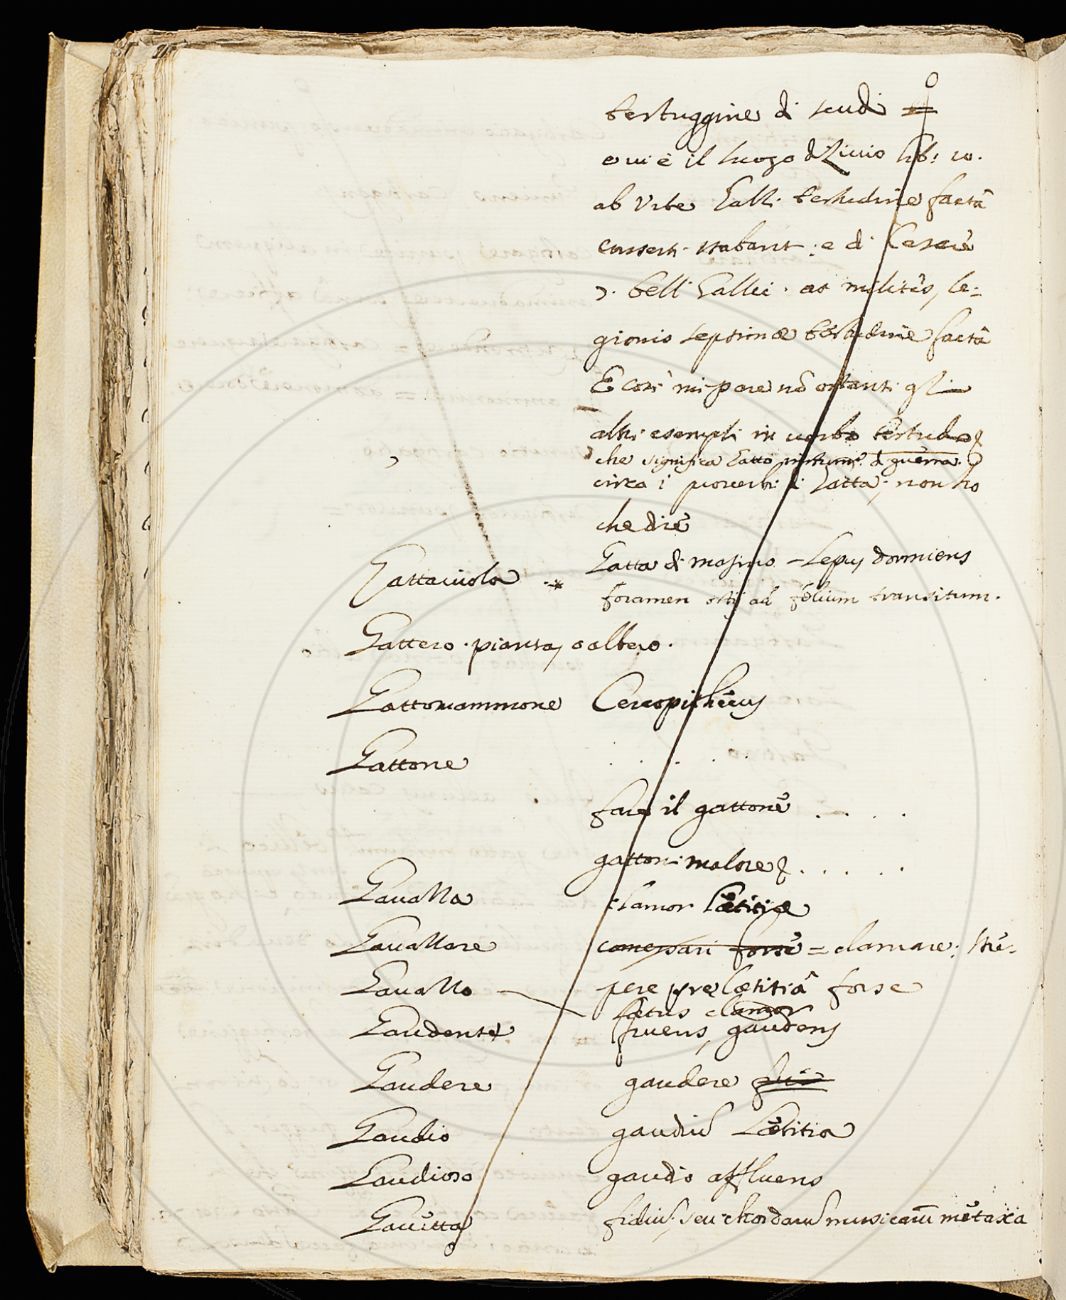 testuggine di scudi
ovvi è il luogo di Livio lib: 10.
ab Urbe Galli testudine factâ
conserti stabant: e di Cesare
belli Gallici. at milites, le=
gionis septimæ testudine factâ
E così mi pare
altri esempli in verbo testudo
che significa Gatto di guerra.
circa i proverbi di Gatta, non ho
che dire
Gatta di Masino - Lepus dormiens
Gattaiuola foramen ad felium transitum.
Gattero. pianta, o albero.
Gattomammone Cercopithecus
Gattone . . . .
fare il gattone . . . .
gattoni malore . . . . .
Gavazza clamor lætitiæ
Gavazzare comessari forse = clamare: stre-
Gavazzo pere præ lætitiâ forse
lætus clamor
Gaudente fruens, gaudens
Gaudere gaudere
Gaudio gaudiũ lætitia
Gaudioso gaudio affluens
Gavetta fidiũ, seu chordarũ musicarũ metaxa